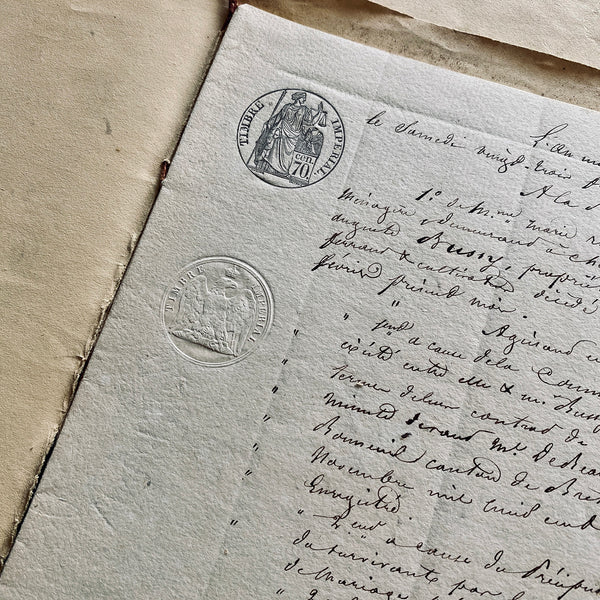 TIMBRE IMPERIAL
CEN. 70
TIMBRE IMPERIAL
L'an mil
le Samedi vingt-trois
A la
1º. de Mme marie
Ménagère, demeurant à
auguste Bussy, propriét
& cultivateur décédé
février présent mois.
" Agissant
" 1ent à cause de la Comm
existé entre elle & m. Bussy
termes de leur contrat de
minute devant Me. de Beau
Bonneuil canton de Bre
Novembre mil huit cent
Enregistré.
" 2ent à cause du Préciput
du survivant par le
de Mariage